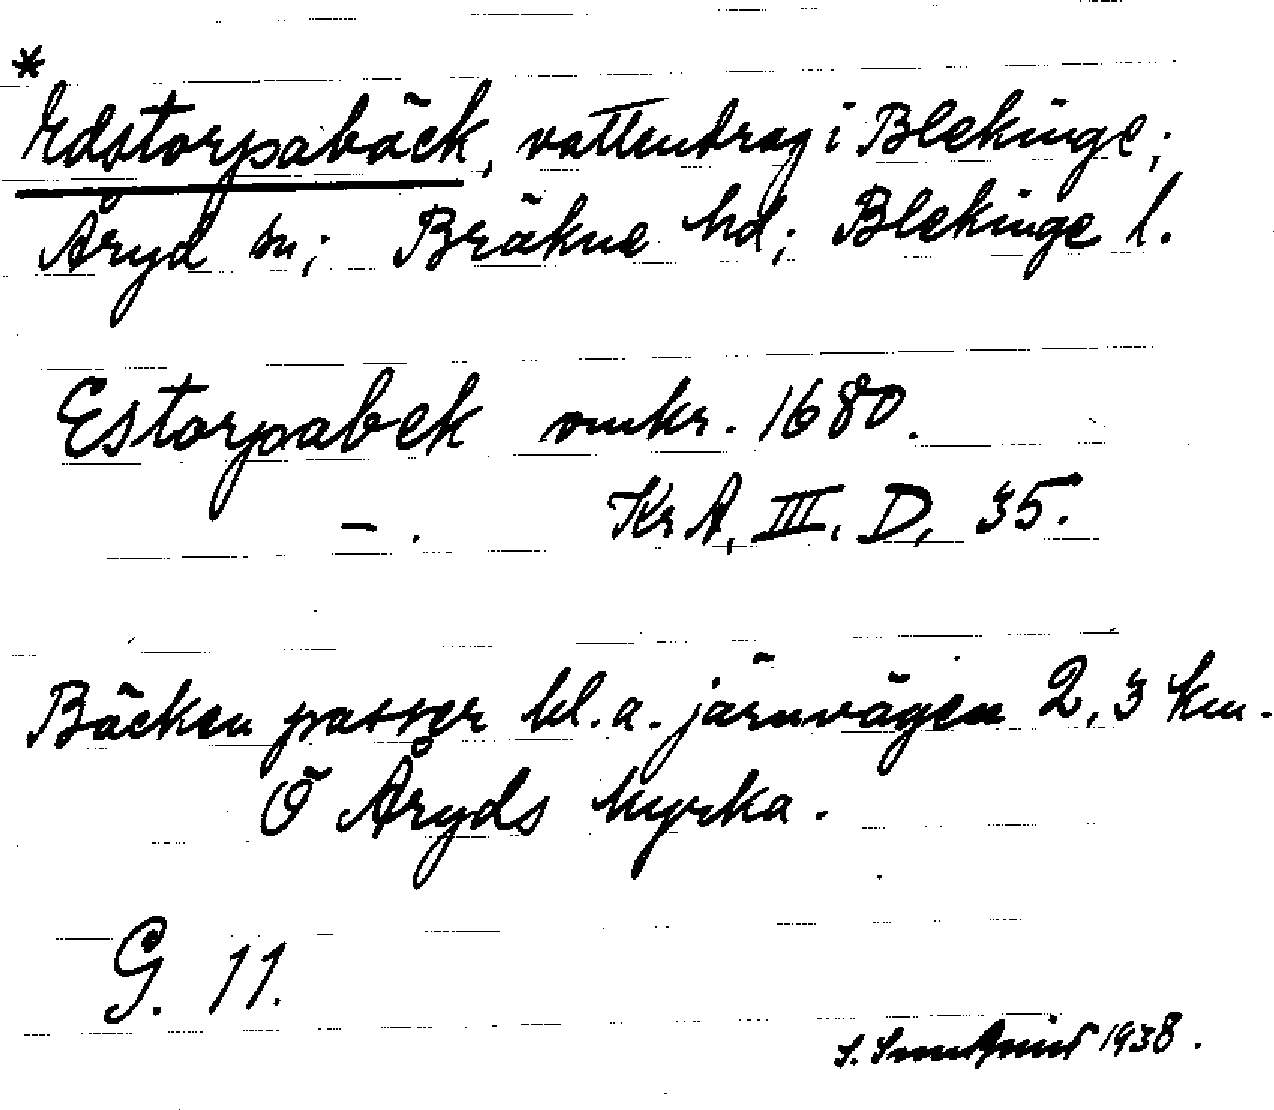 *
Edstorpabäck, vattendrag i Blekinge;
Åryd sn; Bräkne hd; Blekinge l.
Estorpabek omkr. 1680.
—. KrA, III. D, 35.
Bäcken passer bl.a. järnvägen 2,3 km.
Ö Åryds kyrka.
G. 11.
S. 1938.